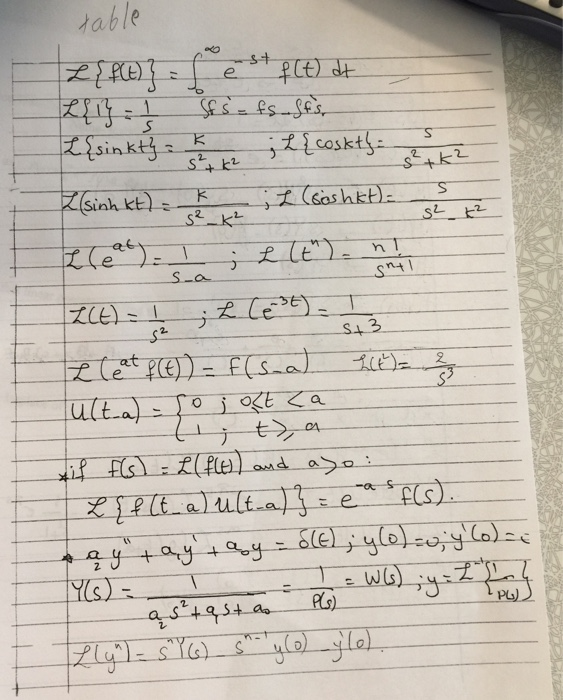 table
ℒ{f(t)} = ∫₀^∞ e^{-st} f(t) dt
ℒ{1} = 1/s   ∫fs' = fs - ∫f's,
ℒ{sinkt} = k/(s²+k²) ; ℒ{coskt} = s/(s²+k²)
ℒ(sinh kt) = k/(s²-k²) ; ℒ(coshkt) = s/(s²-k²)
ℒ(e^{at}) = 1/(s-a) ; ℒ(tⁿ) = n!/s^{n+1}
ℒ(t) = 1/s² ; ℒ(e^{-3t}) = 1/(s+3)
ℒ(e^{at} f(t)) = f(s-a)   ℒ(t²) = 2/s³
U(t-a) = { 0 ; 0≤t<a
1 ; t≥a
*if f(s) = ℒ(f(t)) and a>0 :
ℒ{f(t-a)u(t-a)} = e^{-as} f(s).
* a₂y'' + a₁y' + a₀y = δ(t) ; y(0)=0; y'(0)=
Y(s) = 1/(a₂s²+a₁s+a₀) = 1/P(s) = W(s) ; y = ℒ⁻¹{1/P(s)}
ℒ(yⁿ) = sⁿY(s) - s^{n-1}y(0) - y'(0).